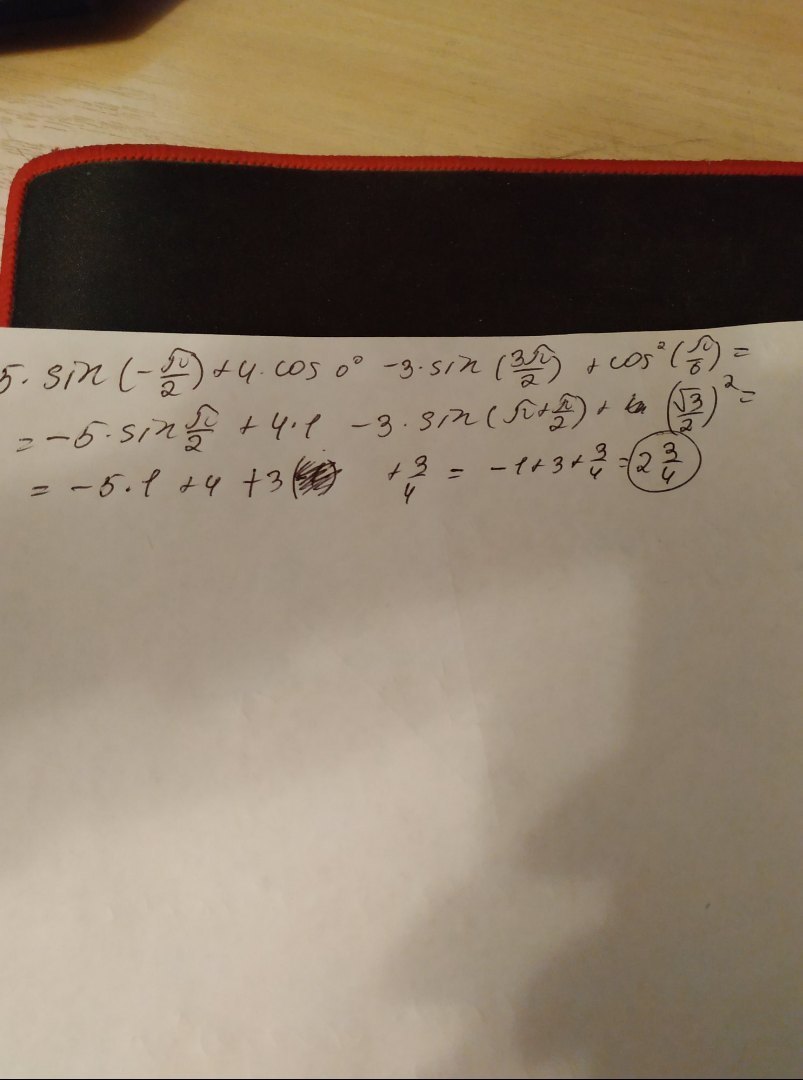 5·sin(-π/2)+4·cos 0° -3·sin(3π/2) + cos²(π/6)=
=-5·sin π/2 +4·1 -3·sin(π+π/2)+ (√3/2)²=
=-5·1 +4 +3 +3/4 = -1+3+3/4=2 3/4